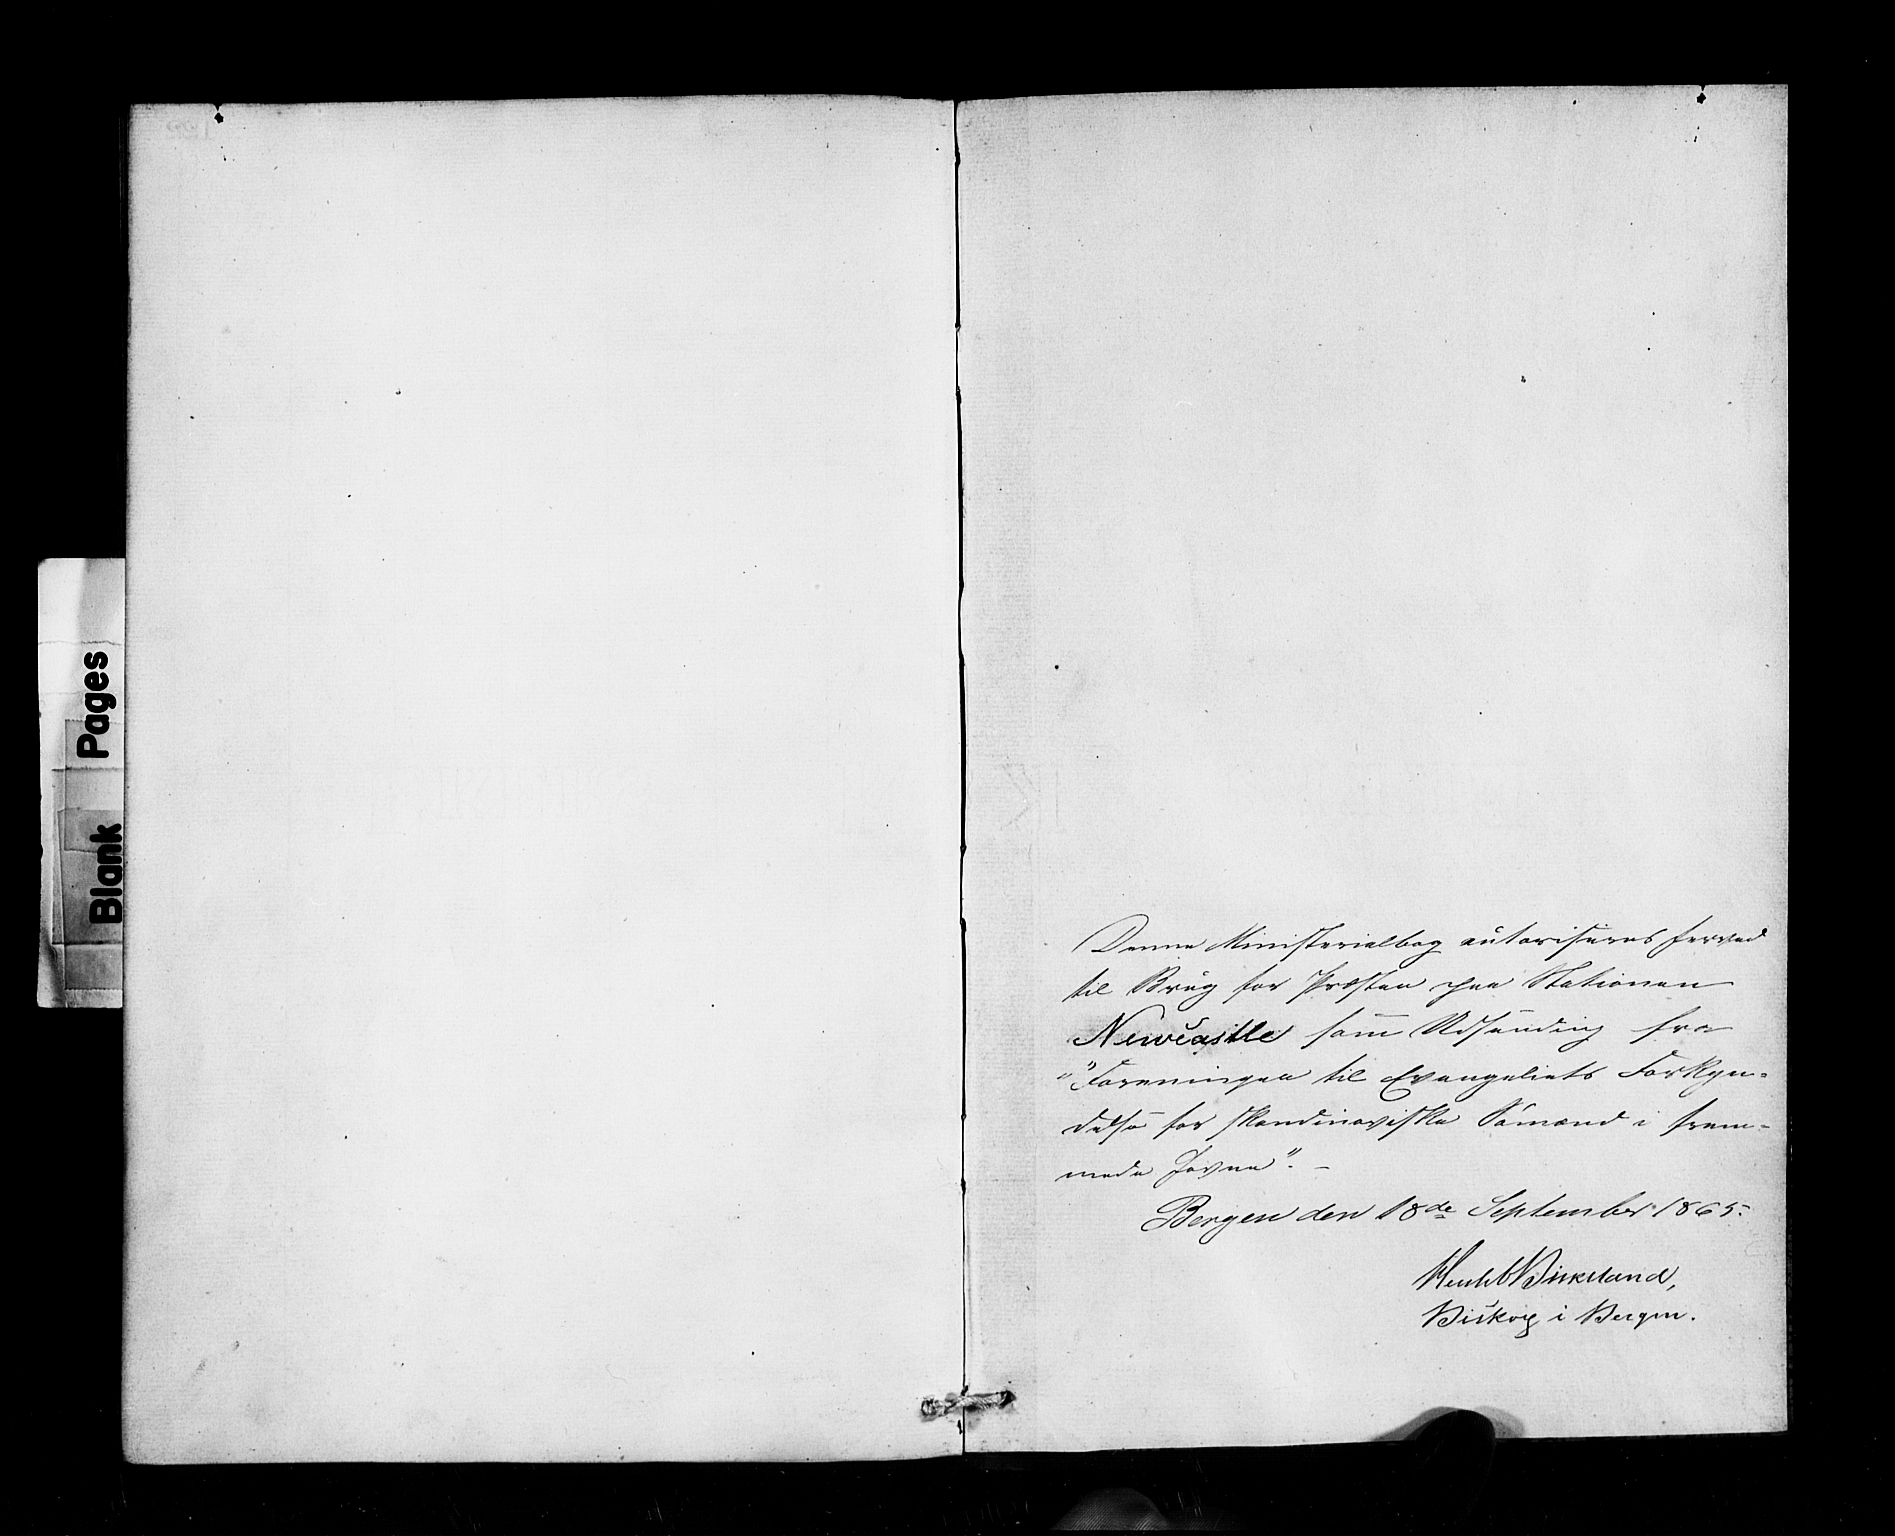 Blank Pages
Denne Ministerialbog autoriseres herved
til Brug for Præsten paa Stationen
Newcastle som Udsending fra
"Foreningen til Evangeliets Forkyn-
delse for skandinaviske Sømænd i frem-
mede Havne". –
Bergen den 18de September 1865.
Birkeland,
Biskop i Bergen.